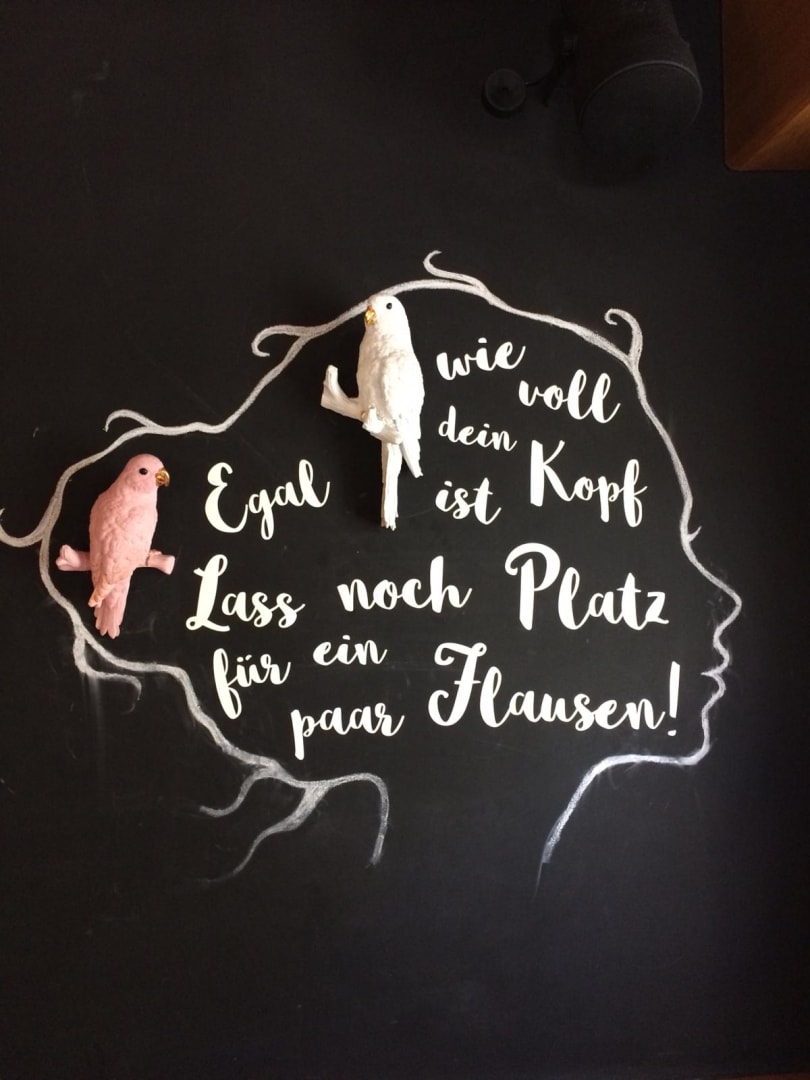 Egal wie voll
dein Kopf
ist
Lass noch Platz
für ein
paar Flausen!